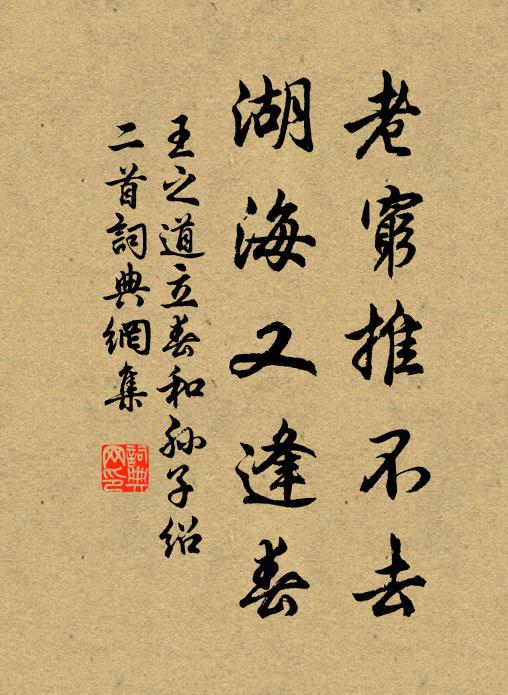 老窮推不去
湖海又逢春
王之道立春和孙子绍
二首詞典網集
詞典
网印